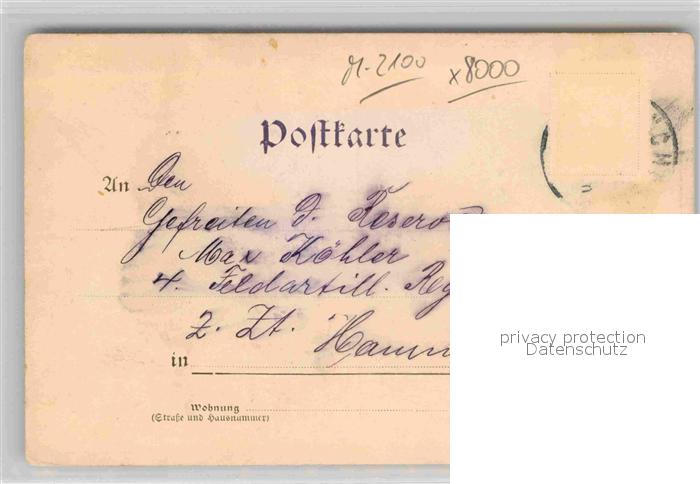 M-2100 x8000
Postkarte
An Den
Gefreiten d. Reserv
Max Köhler
4. Feldartill. Reg
z. Zt. Hamm
in
Wohnung
(Straße und Hausnummer)
privacy protection
Datenschutz